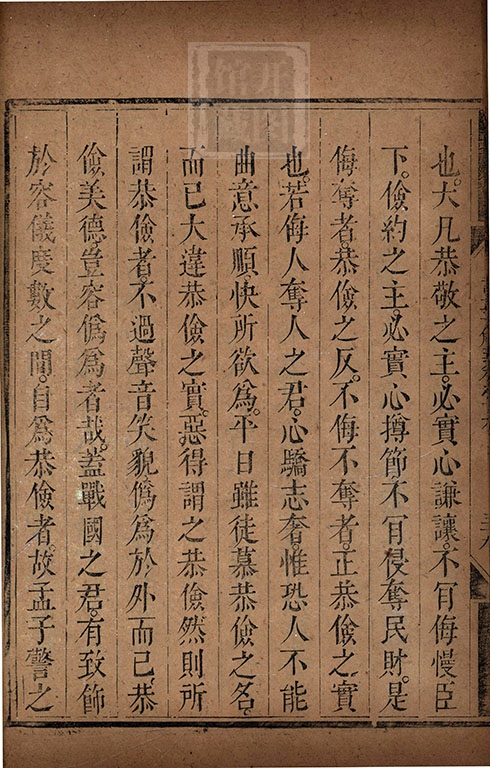 也。大凡恭敬之主。必實心謙讓。不肯侮慢臣
下。儉約之主。必實心撙節。不肯侵奪民財。是
侮奪者。恭儉之反。不侮不奪者。正恭儉之實
也。若侮人奪人之君。心驕志奢。惟恐人不能
曲意承順。快所欲為。平日雖徒慕恭儉之名。
而已大違恭儉之實。惡得謂之恭儉。然則所
謂恭儉者。不過聲音笑貌偽為於外而已。恭
儉美德。豈容偽為者哉。蓋戰國之君。有致飾
於容儀度數之間。自為恭儉者。故孟子警之